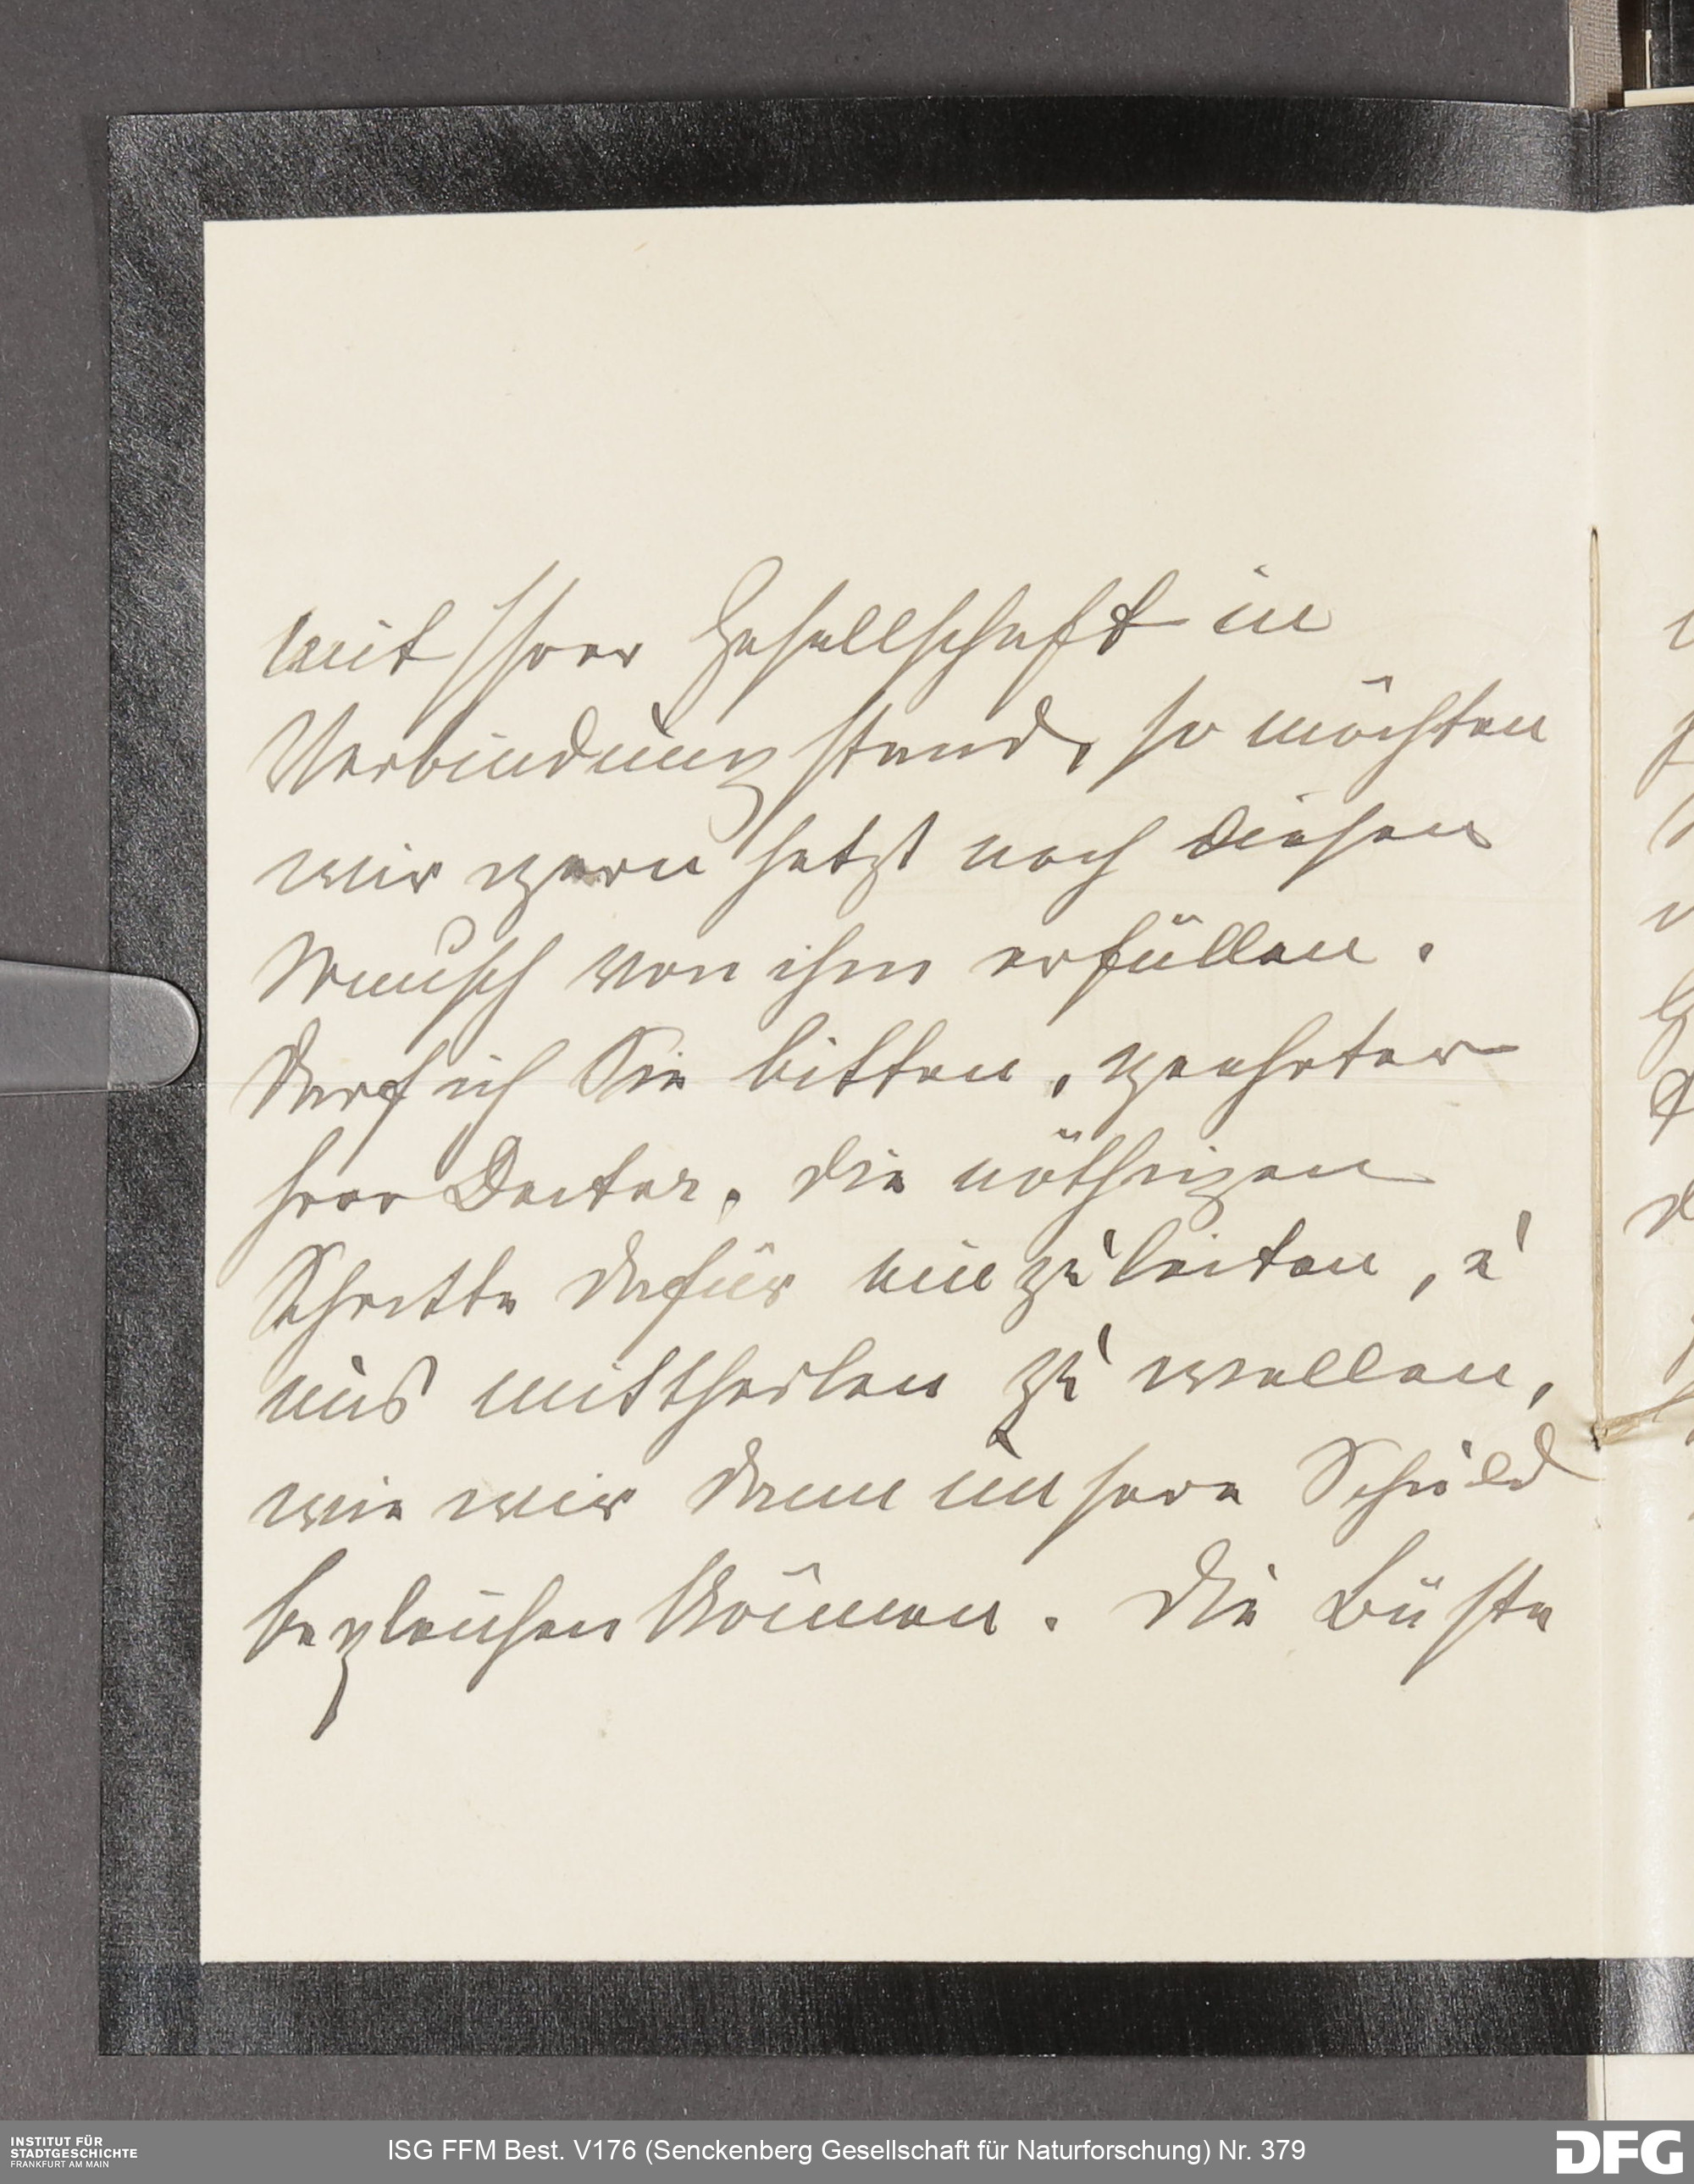 mit Ihrer Gesellschaft in
Verbindung stand, so möchten
wir gern jetzt noch diesen
Wunsch von ihm erfüllen.
Darf ich Sie bitten, geehrter
Herr Doctor, die nöthigen
Schritte dafür einzuleiten, u
uns mittheilen zu wollen,
wie wir dann unsere Schuld
begleichen können. Die Büste
INSTITUT FÜR
STADTGESCHICHTE
FRANKFURT AM MAIN
ISG FFM Best. V176 (Senckenberg Gesellschaft für Naturforschung) Nr. 379
DFG